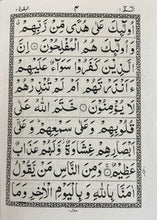 البقرة ٢
٣
الٓمٓ ١
وَاُولٰٓئِكَ عَلٰى هُدًى مِّنْ رَّبِّهِمْ
وَاُولٰٓئِكَ هُمُ الْمُفْلِحُوْنَ ۝ اِنَّ
الَّذِيْنَ كَفَرُوْا سَوَآءٌ عَلَيْهِمْ
ءَاَنْذَرْتَهُمْ اَمْ لَمْ تُنْذِرْهُمْ
لَا يُؤْمِنُوْنَ ۝ خَتَمَ اللّٰهُ عَلٰى
قُلُوْبِهِمْ وَعَلٰى سَمْعِهِمْ وَعَلٰٓى
اَبْصَارِهِمْ غِشَاوَةٌ وَّلَهُمْ عَذَابٌ
عَظِيْمٌ ۝ وَمِنَ النَّاسِ مَنْ يَّقُوْلُ
اٰمَنَّا بِاللّٰهِ وَبِالْيَوْمِ الْاٰخِرِ وَمَا